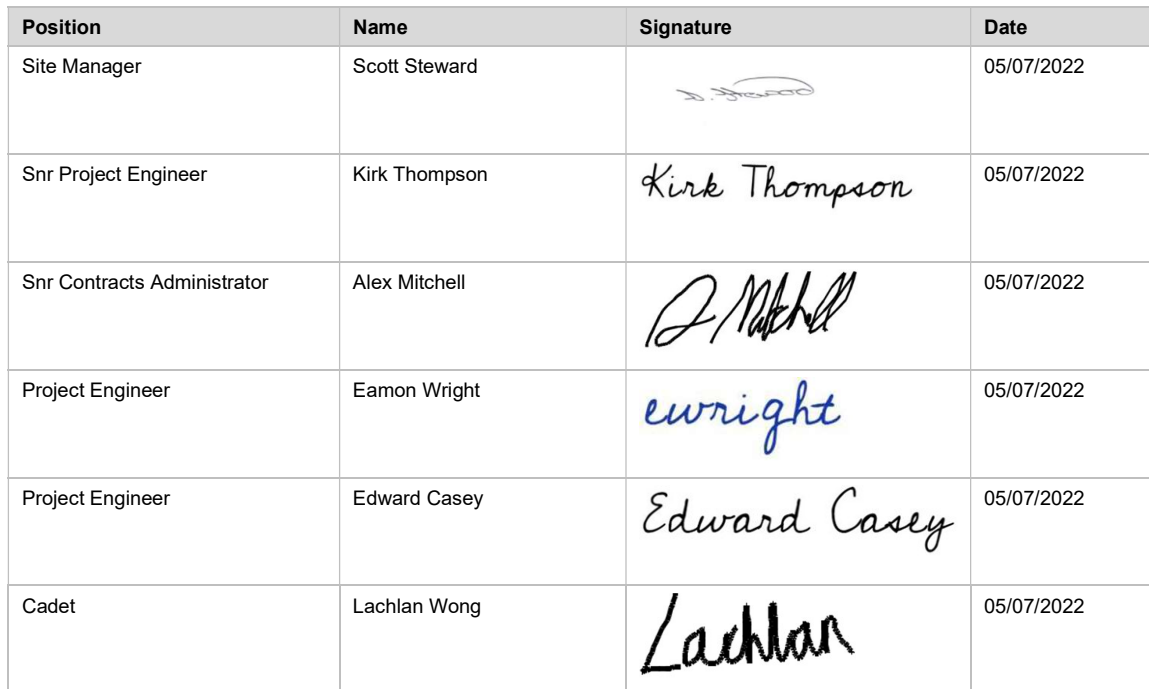 Position Name Signature Date
Site Manager Scott Steward 05/07/2022
Snr Project Engineer Kirk Thompson Kirk Thompson 05/07/2022
Snr Contracts Administrator Alex Mitchell A Mitchell 05/07/2022
Project Engineer Eamon Wright ewright 05/07/2022
Project Engineer Edward Casey Edward Casey 05/07/2022
Cadet Lachlan Wong Lachlan 05/07/2022